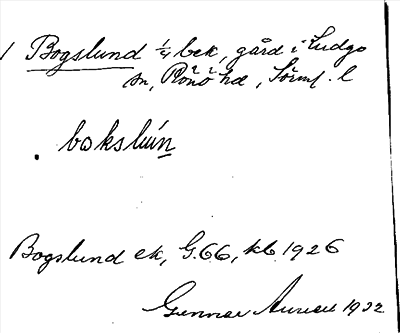 1 Bogslund ¼ bek, gård i Ludgo
sn, Rönö hd, Sörmf. l
bokslun
Bogslund ek, G.66, kb 1926
Gunnar 1932